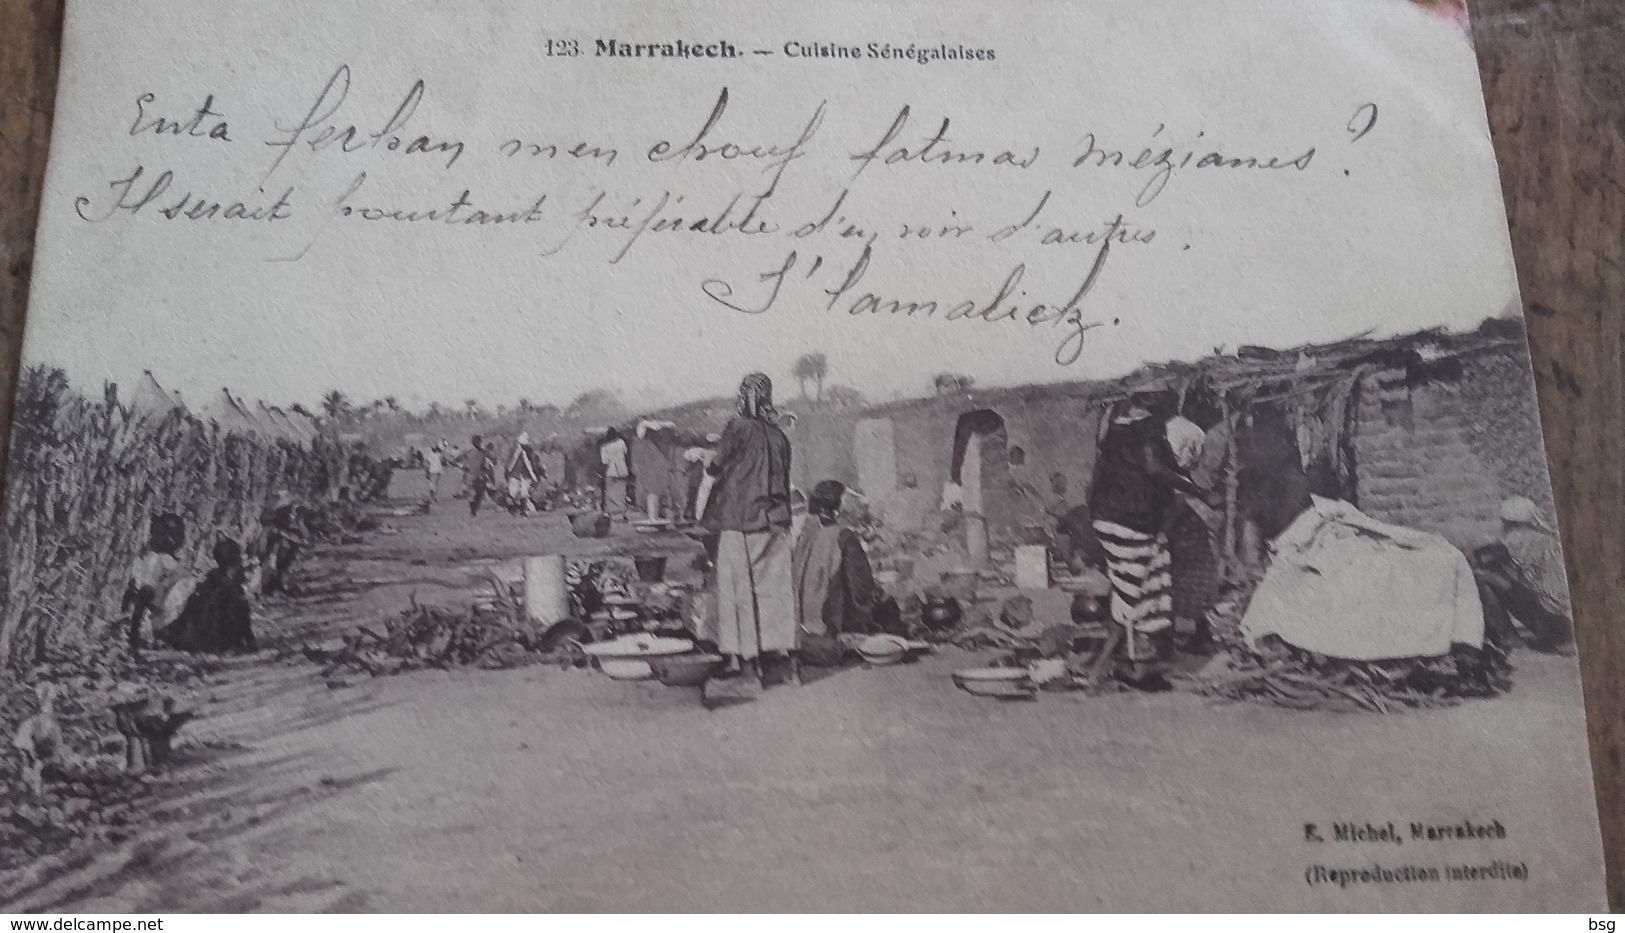 123. Marrakech. — Cuisine Sénégalaises
Enta ferhan men chouf fatmas mézianes ?
Il serait pourtant préférable d'en voir d'autres.
S'lamalick.
E. Michel, Marrakech
(Reproduction interdite)
www.delcampe.net
bsg